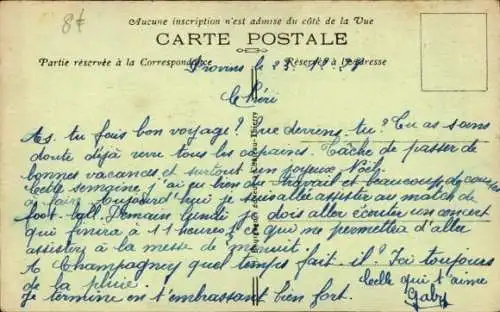 8€
Aucune inscription n'est admise du côté de la Vue
CARTE POSTALE
Partie réservée à la Correspondance Réservée à l'Adresse
Provins le 23. 12.
Chéri
As tu fais bon voyage? Que deviens tu? Tu as sans
doute déjà revu tous les copains. Tâche de passer de
bonnes vacances et surtout un joyeux Noël.
Cette semaine j'ai eu bien du travail et beaucoup de courses
à faire. Aujourd'hui je suis allée assister au match de
foot-ball. Demain lundi je dois aller écouter un concert
qui finira à 11 heures ce qui me permettra d'aller
assister à la messe de minuit.
A Champagney quel temps fait-il? Ici toujours
de la pluie. Celle qui t'aime
Je termine en t'embrassant bien fort. Gaby
Château-Thierry